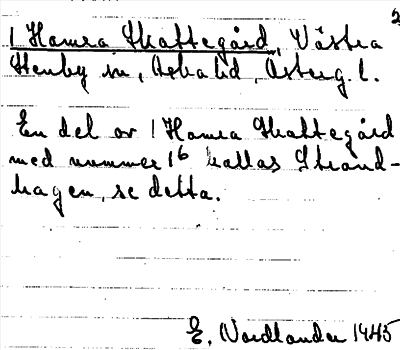 2
1 Hamra Skattegård, Västra
Stenby sn, Aska hd, Österg. l.
En del av 1 Hamra Skattegård
med nummer 1⁶ kallas Strand-
hagen, se detta.
E. Nordlander 1945